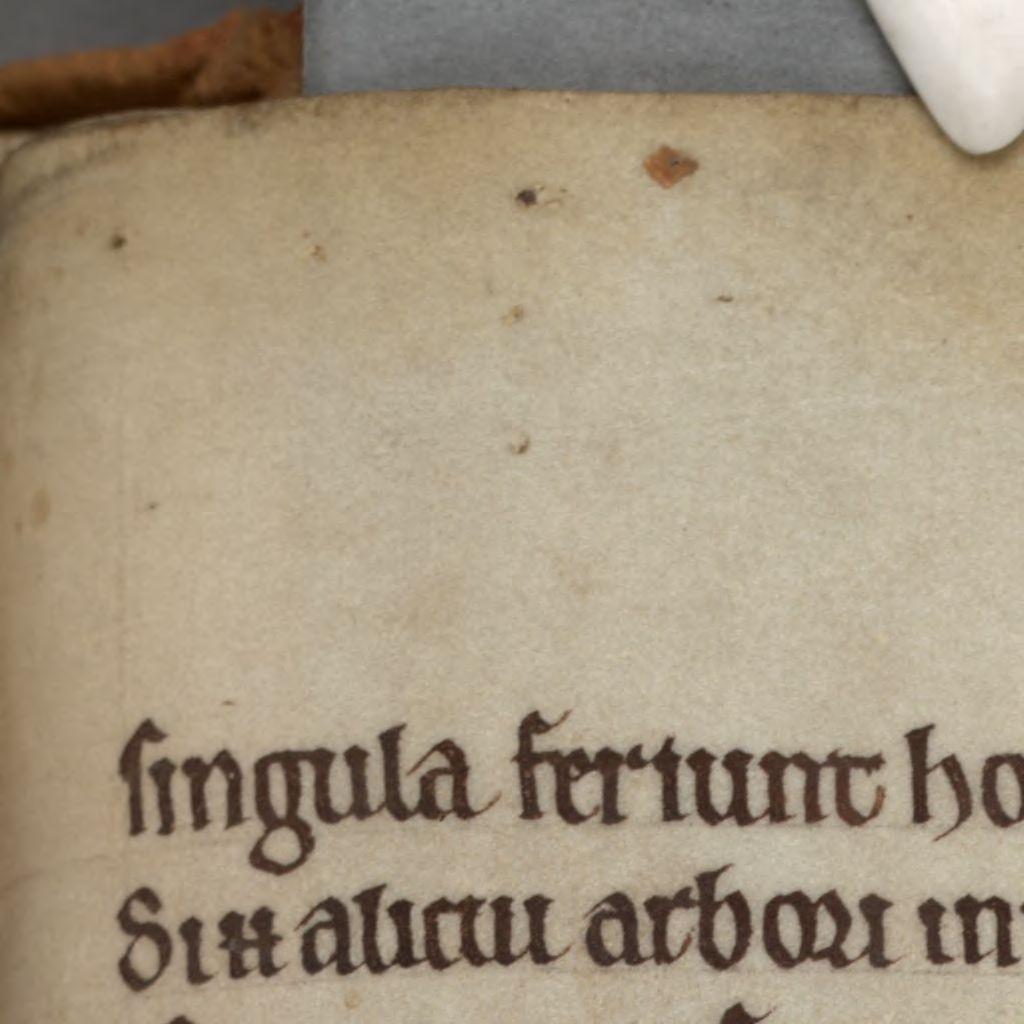 singula feriunt ho
alicui arbori in